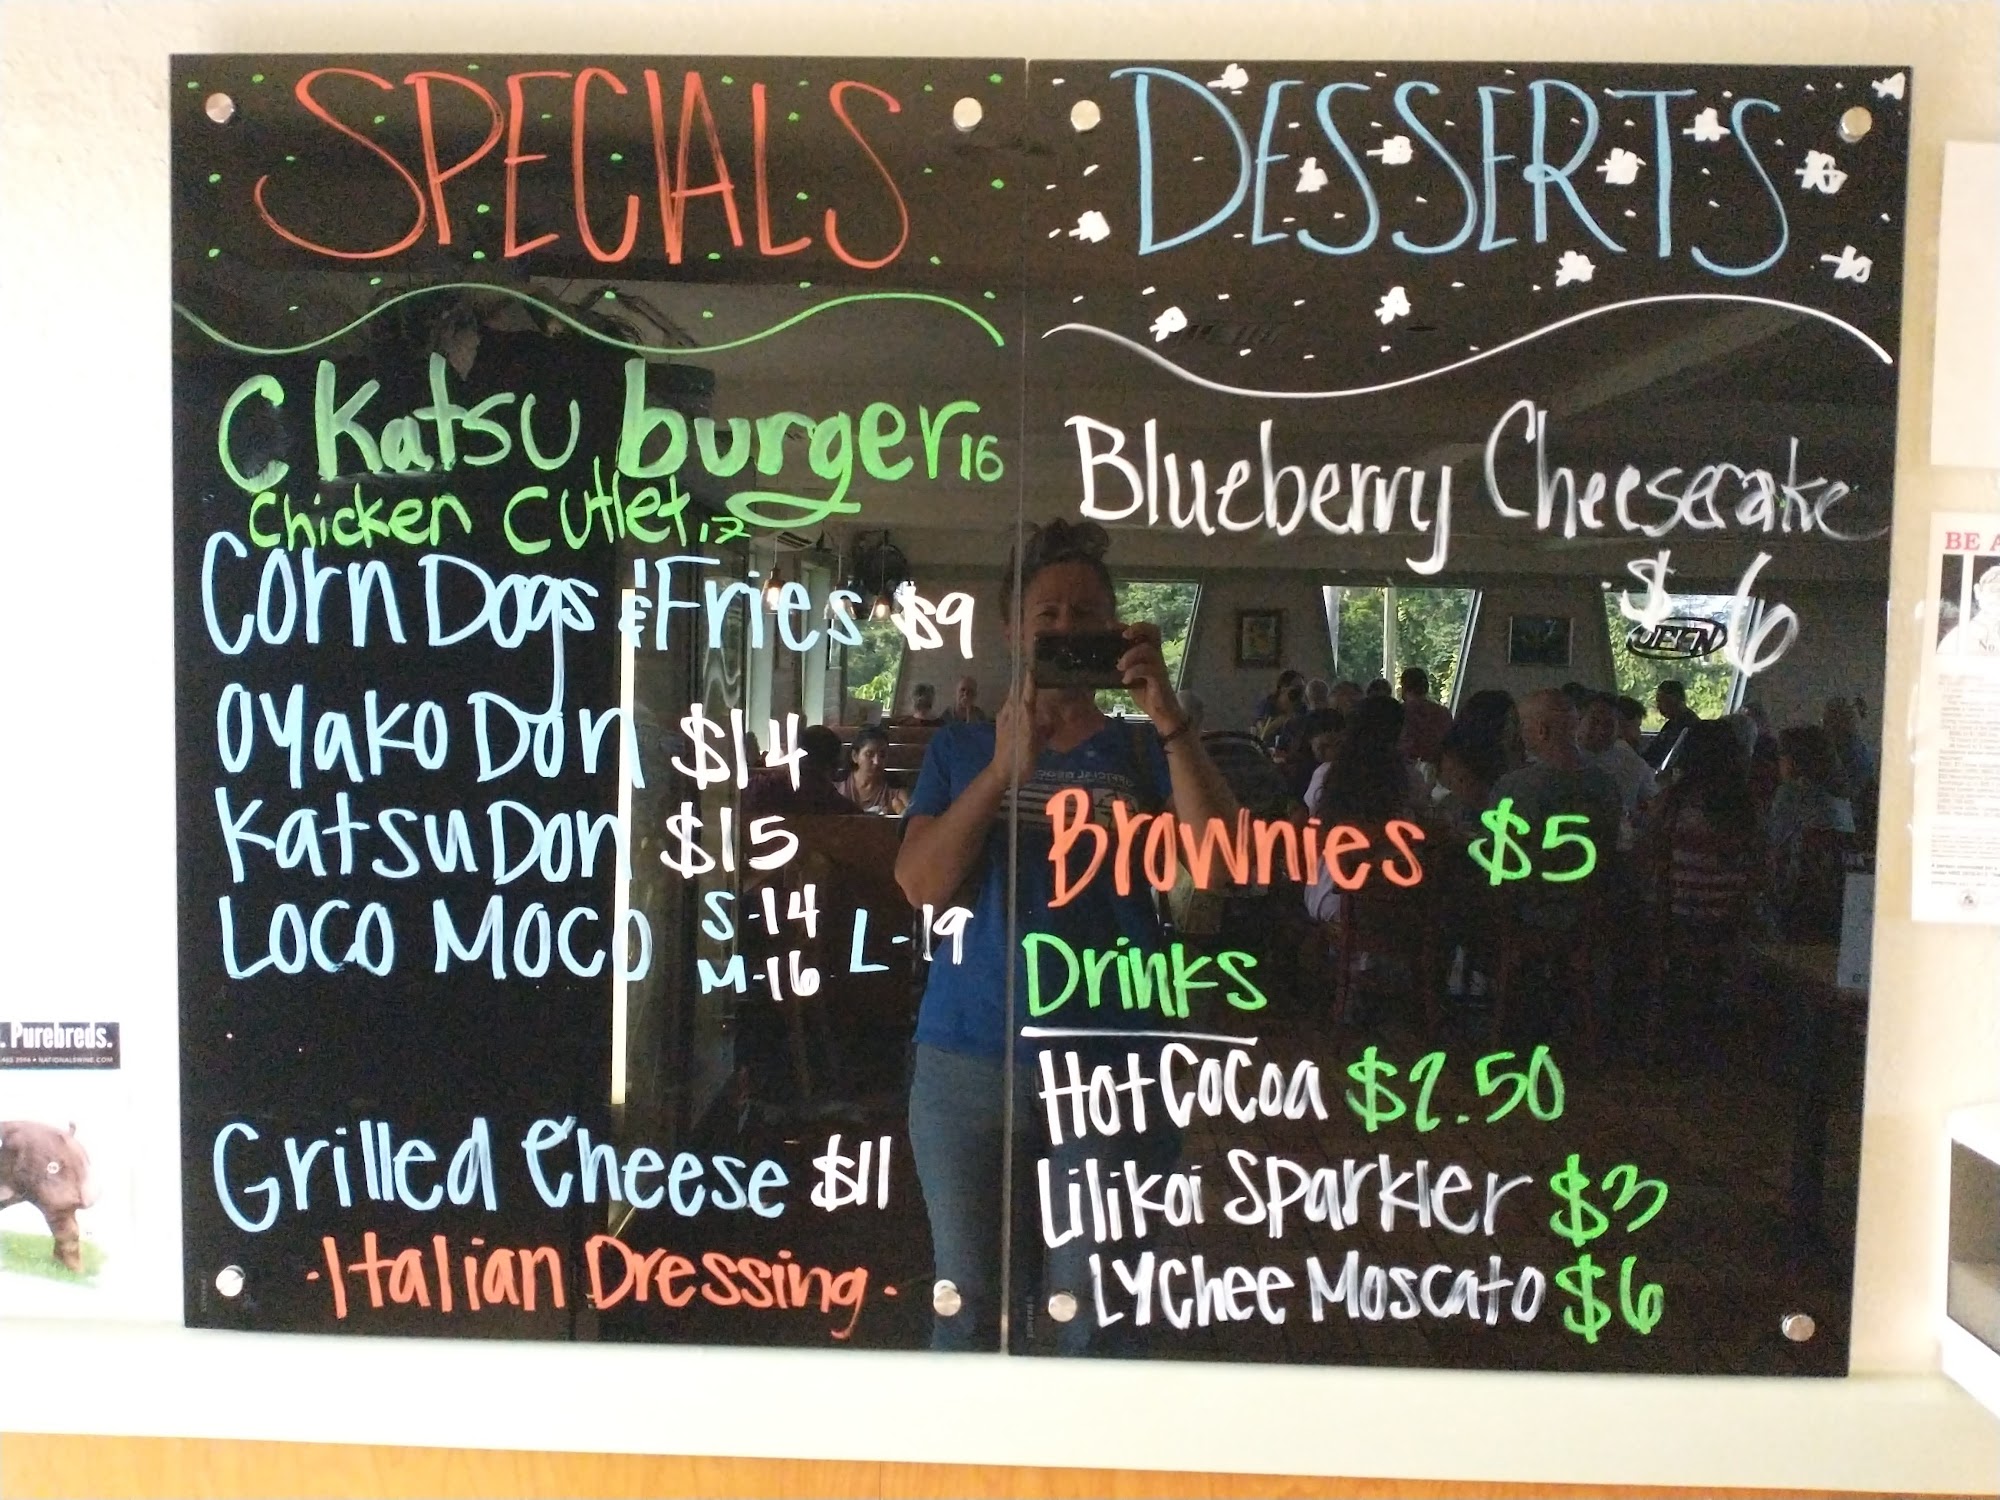 SPECIALS
C Katsu burger 16
Chicken Cutlet 17
Corn Dogs & Fries $9
Oyako Don $14
Katsu Don $15
Loco Moco S-14 L-19
M-16
Grilled Cheese $11
·Italian Dressing·
DESSERTS
Blueberry Cheesecake
$6
Brownies $5
Drinks
Hot Cocoa $2.50
Lilikoi Sparkler $3
Lychee Moscato $6
Purebreds.
BE A